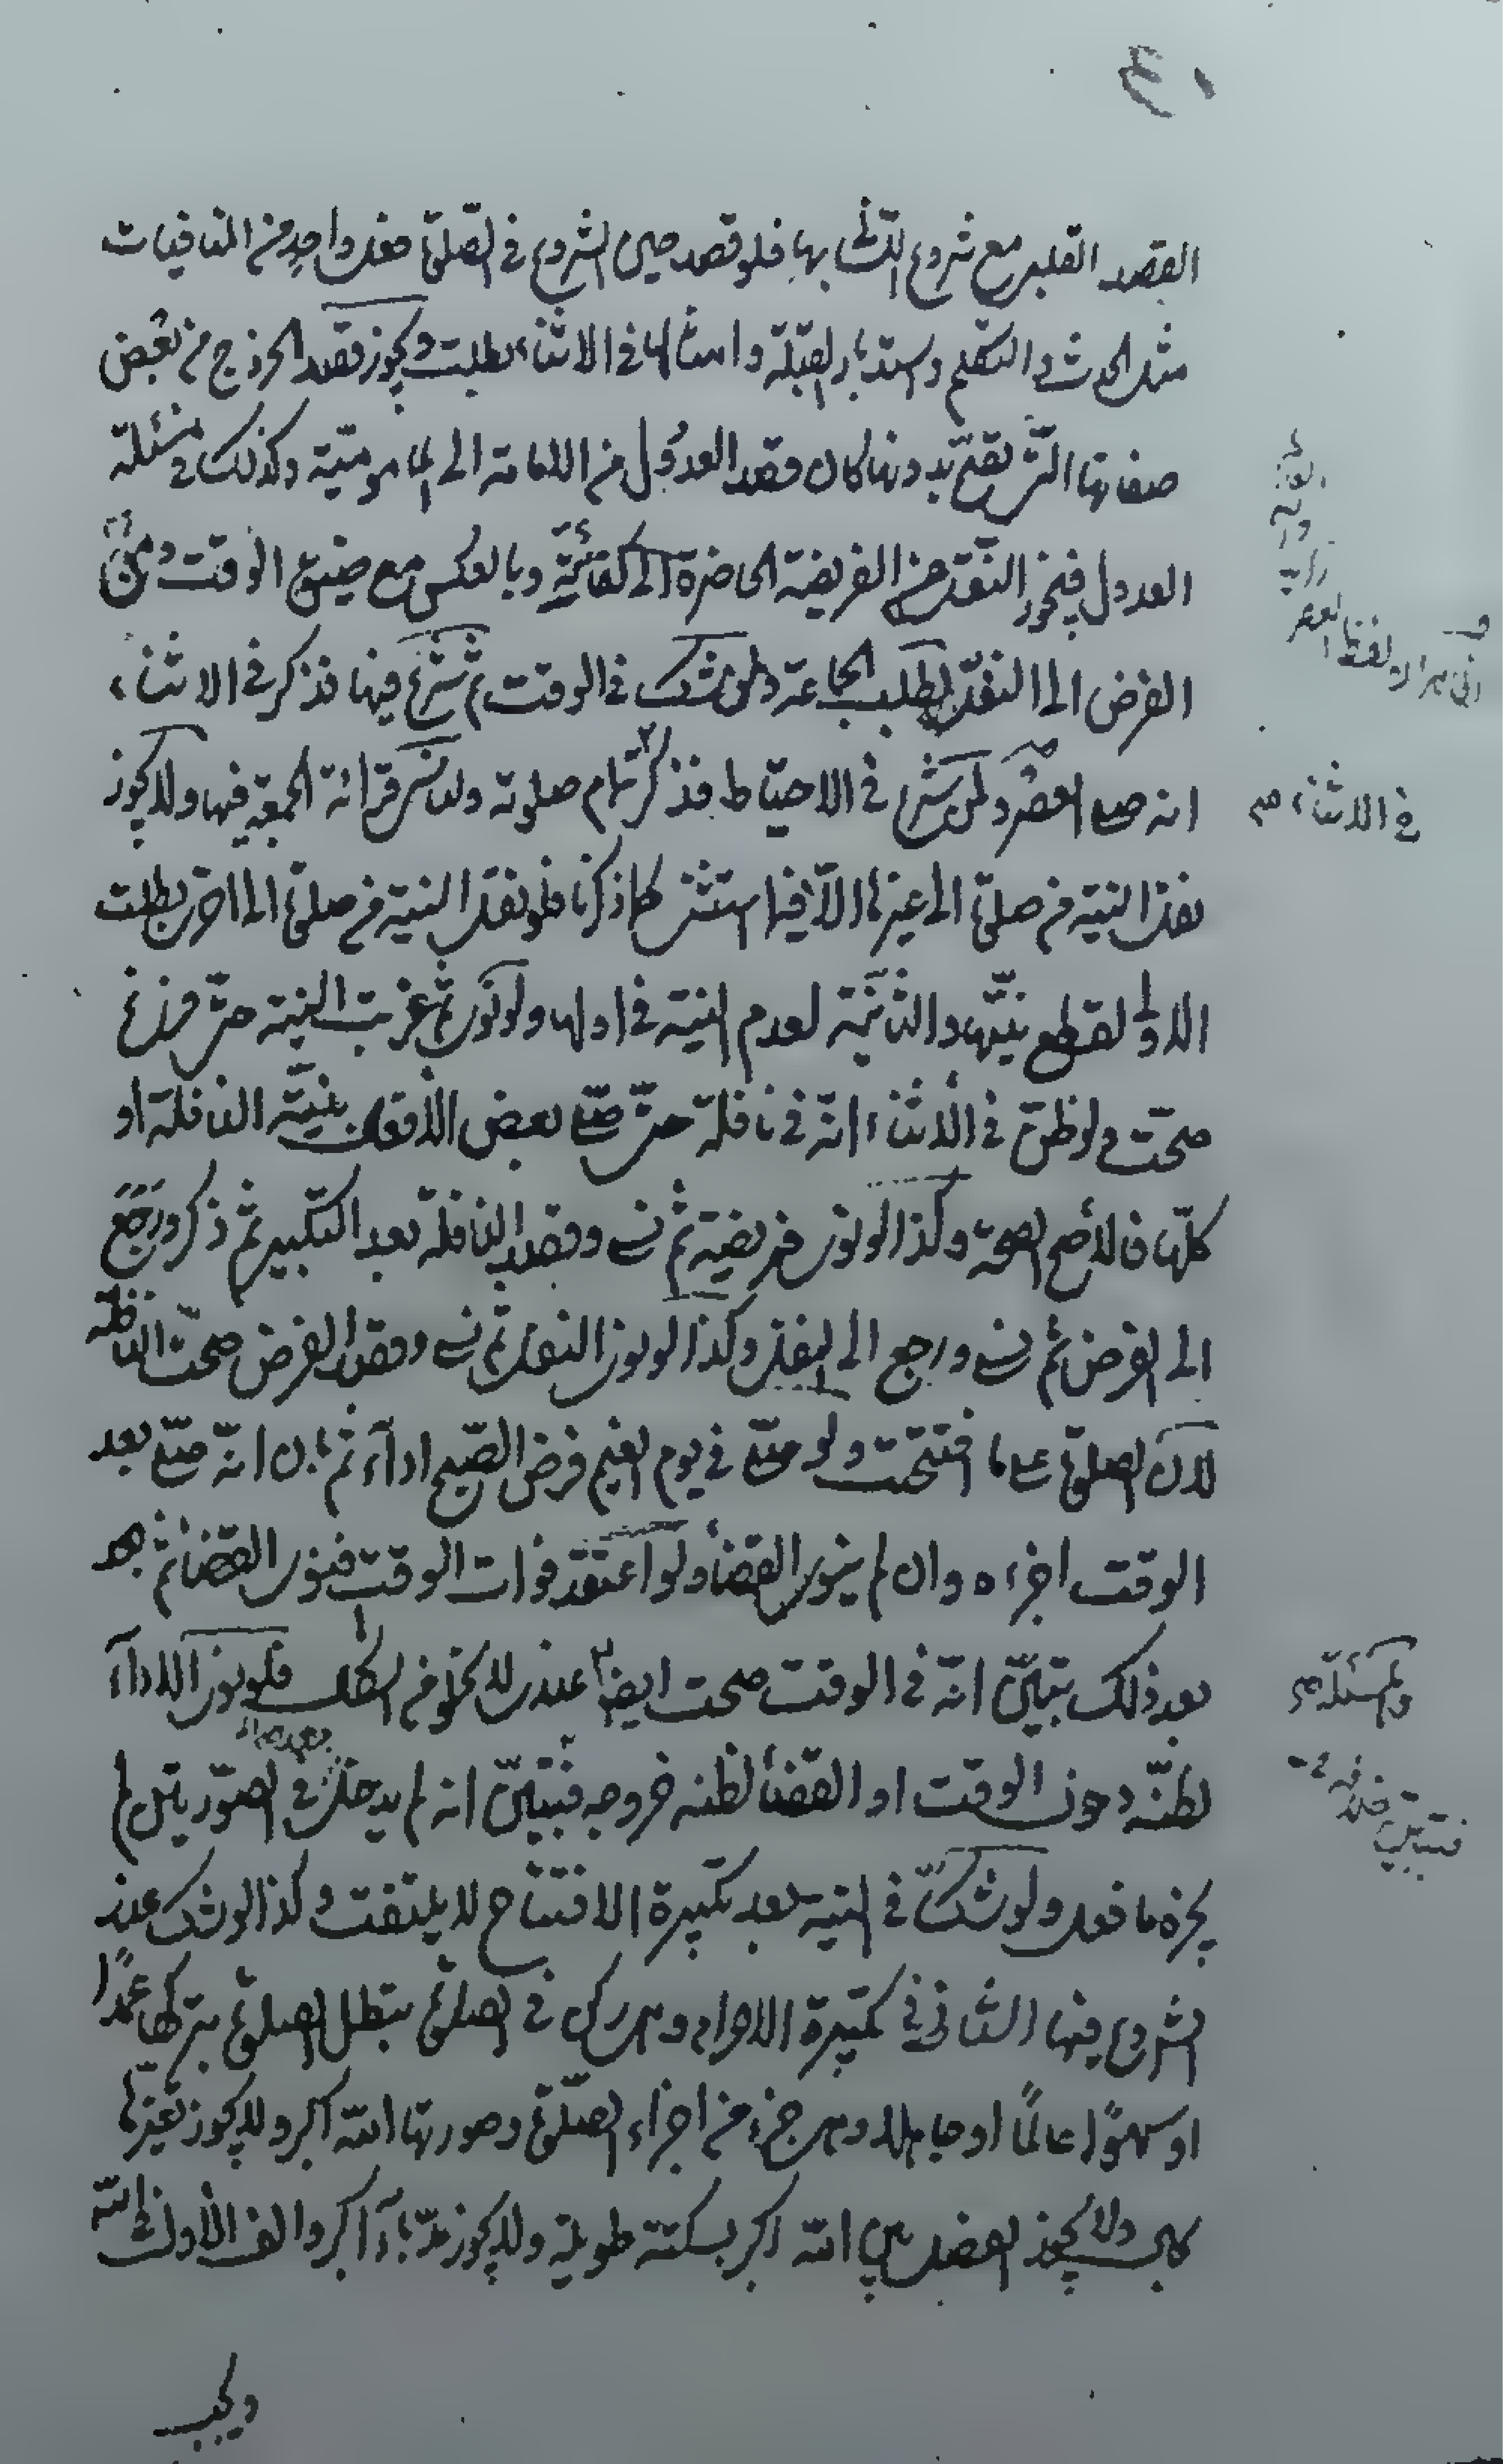 القصد القلبى مع شروع التلفظ بها فلو قصد حين الشروع فى الصلوة فعل واحد من المنافيات
مثل الحدث والتكلم واستدبار القبلة وامثالها فى الاثناء بطلت ويجوز قصد الخروج من بعض
صفاتها التى تصح بدونها كان قصد العدول من الامامة الى المامومية وكذلك فى مسئلة
العدول فيجوز النقل من الفريضة الحاضرة الى الفائتة وبالعكس مع ضيق الوقت ومن
الفرض الى النفل لطلب الجماعة ولمن شك فى الوقت ثم شرع فيها فذكر فى الاثناء
انه صلى العصر ولمن شرع فى الاحتياط فذكر تمام صلوته ولناسى قرائة الجمعة فيها ولا يجوز
نقل النية من صلوة الى غيرها الا فيما استثنى كما ذكرنا فلو نقل النية من صلوة الى اخرى بطلت
الاولى لقطع نيتها والثانية لعدم النية فى اولها ولو نوى ثم عزبت النية حتى فرغ
صحت ولو ظن فى الاثناء انه فى نافلة حتى صلى بعض الافعال بنية النافلة او
كلها فالاصح الصحة وكذا لو نوى فريضة ثم نسى وقصد النافلة بعد التكبير ثم ذكر ورجع
الى الفرض ثم نسى ورجع الى النفل وكذا لو نوى النفل ثم نسى وقصد الفرض صحت النافلة
لان الصلوة على ما افتتحت ولو صلى فى يوم الغيم فرض الصبح اداء ثم بان انه صلى بعد
الوقت اجزءه وان لم ينوى القضاء ولو اعتقد فوات الوقت فنوى القضاء ثم بعد
بعد ذلك تبين انه فى الوقت صحت ايضا عندى لا يخلو من اشكال فلو نوى الاداء
لظنه دخول الوقت او القضاء لظنه خروجه فتبين انه لم يدخل فى الصورتين لم
يجزه ما فعل ولو شك فى النية بعد تكبيرة الافتتاح لا يلتفت وكذا لو شك عند
الشروع فيها الثانى فى تكبيرة الاحرام وهى ركن فى الصلوة تبطل الصلوة بتركها عمدًا
او سهوًا عالمًا او جاهلا وهى جزء من اجزاء الصلوة وصورتها الله اكبر ولا يجوز تغيرها
ولا يجوز الفصل بين الله اكبر بسكتة طويلة ولا يجوز مد باء اكبر والف الاول
فى الاثناء صح
والمسئلة صح
ويجب